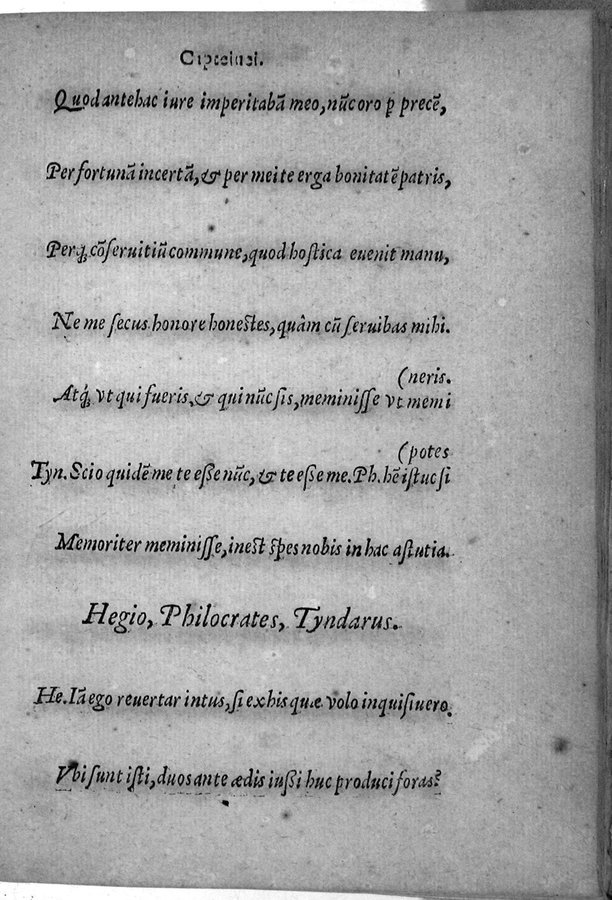 Captiuei.
Quod antehac iure imperitabā meo, nūc oro ꝑ precē,
Per fortunā incertā, & per mei te erga bonitatē patris,
Perq́; cōseruitiū commune, quod hostica euenit manu,
Ne me secus honore honestes, quàm cū seruibas mihi.
(neris.
Atq́; vt qui fueris, & qui nūc sis, meminisse vt memi
(potes
Tyn. Scio quidē me te esse nūc, & te esse me. Ph. hē istuc si
Memoriter meminisse, inest spes nobis in hac astutia.
Hegio, Philocrates, Tyndarus.
He. Iā ego reuertar intus, si ex his quæ volo inquisiuero.
Vbi sunt isti, duos ante ædis iussi huc produci foras?